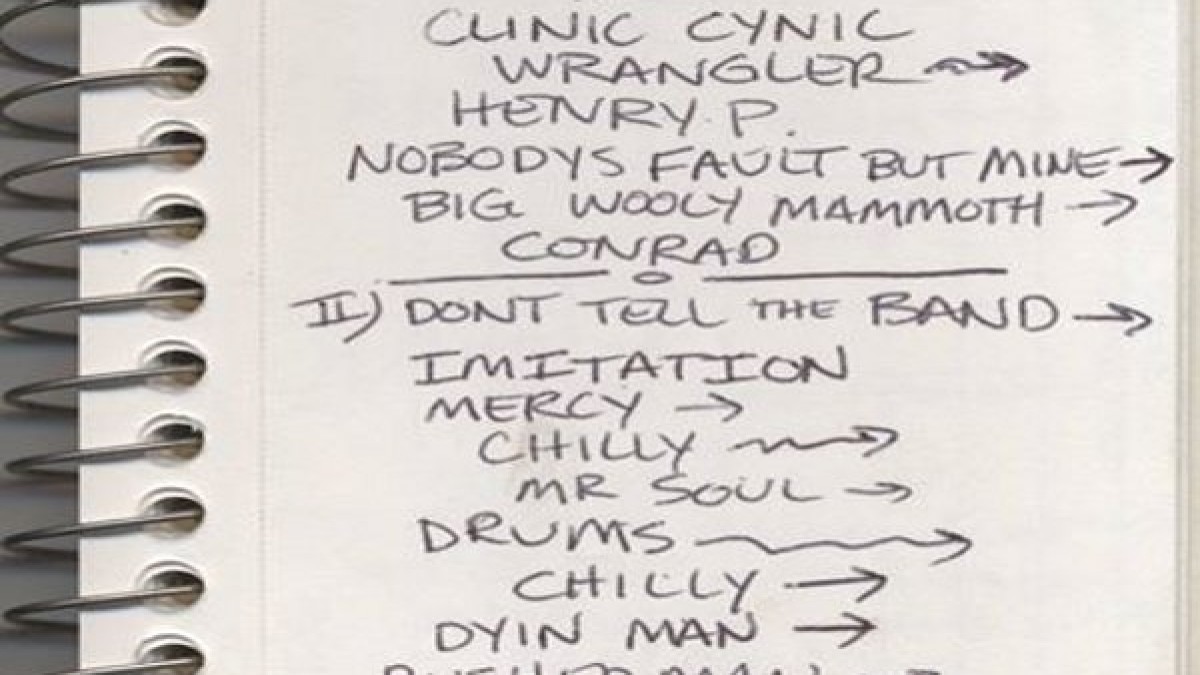 CLINIC CYNIC
WRANGLER →
HENRY P.
NOBODYS FAULT BUT MINE →
BIG WOOLY MAMMOTH →
CONRAD
II) DONT TELL THE BAND →
IMITATION
MERCY →
CHILLY →
MR SOUL →
DRUMS →
CHILLY →
DYIN MAN →